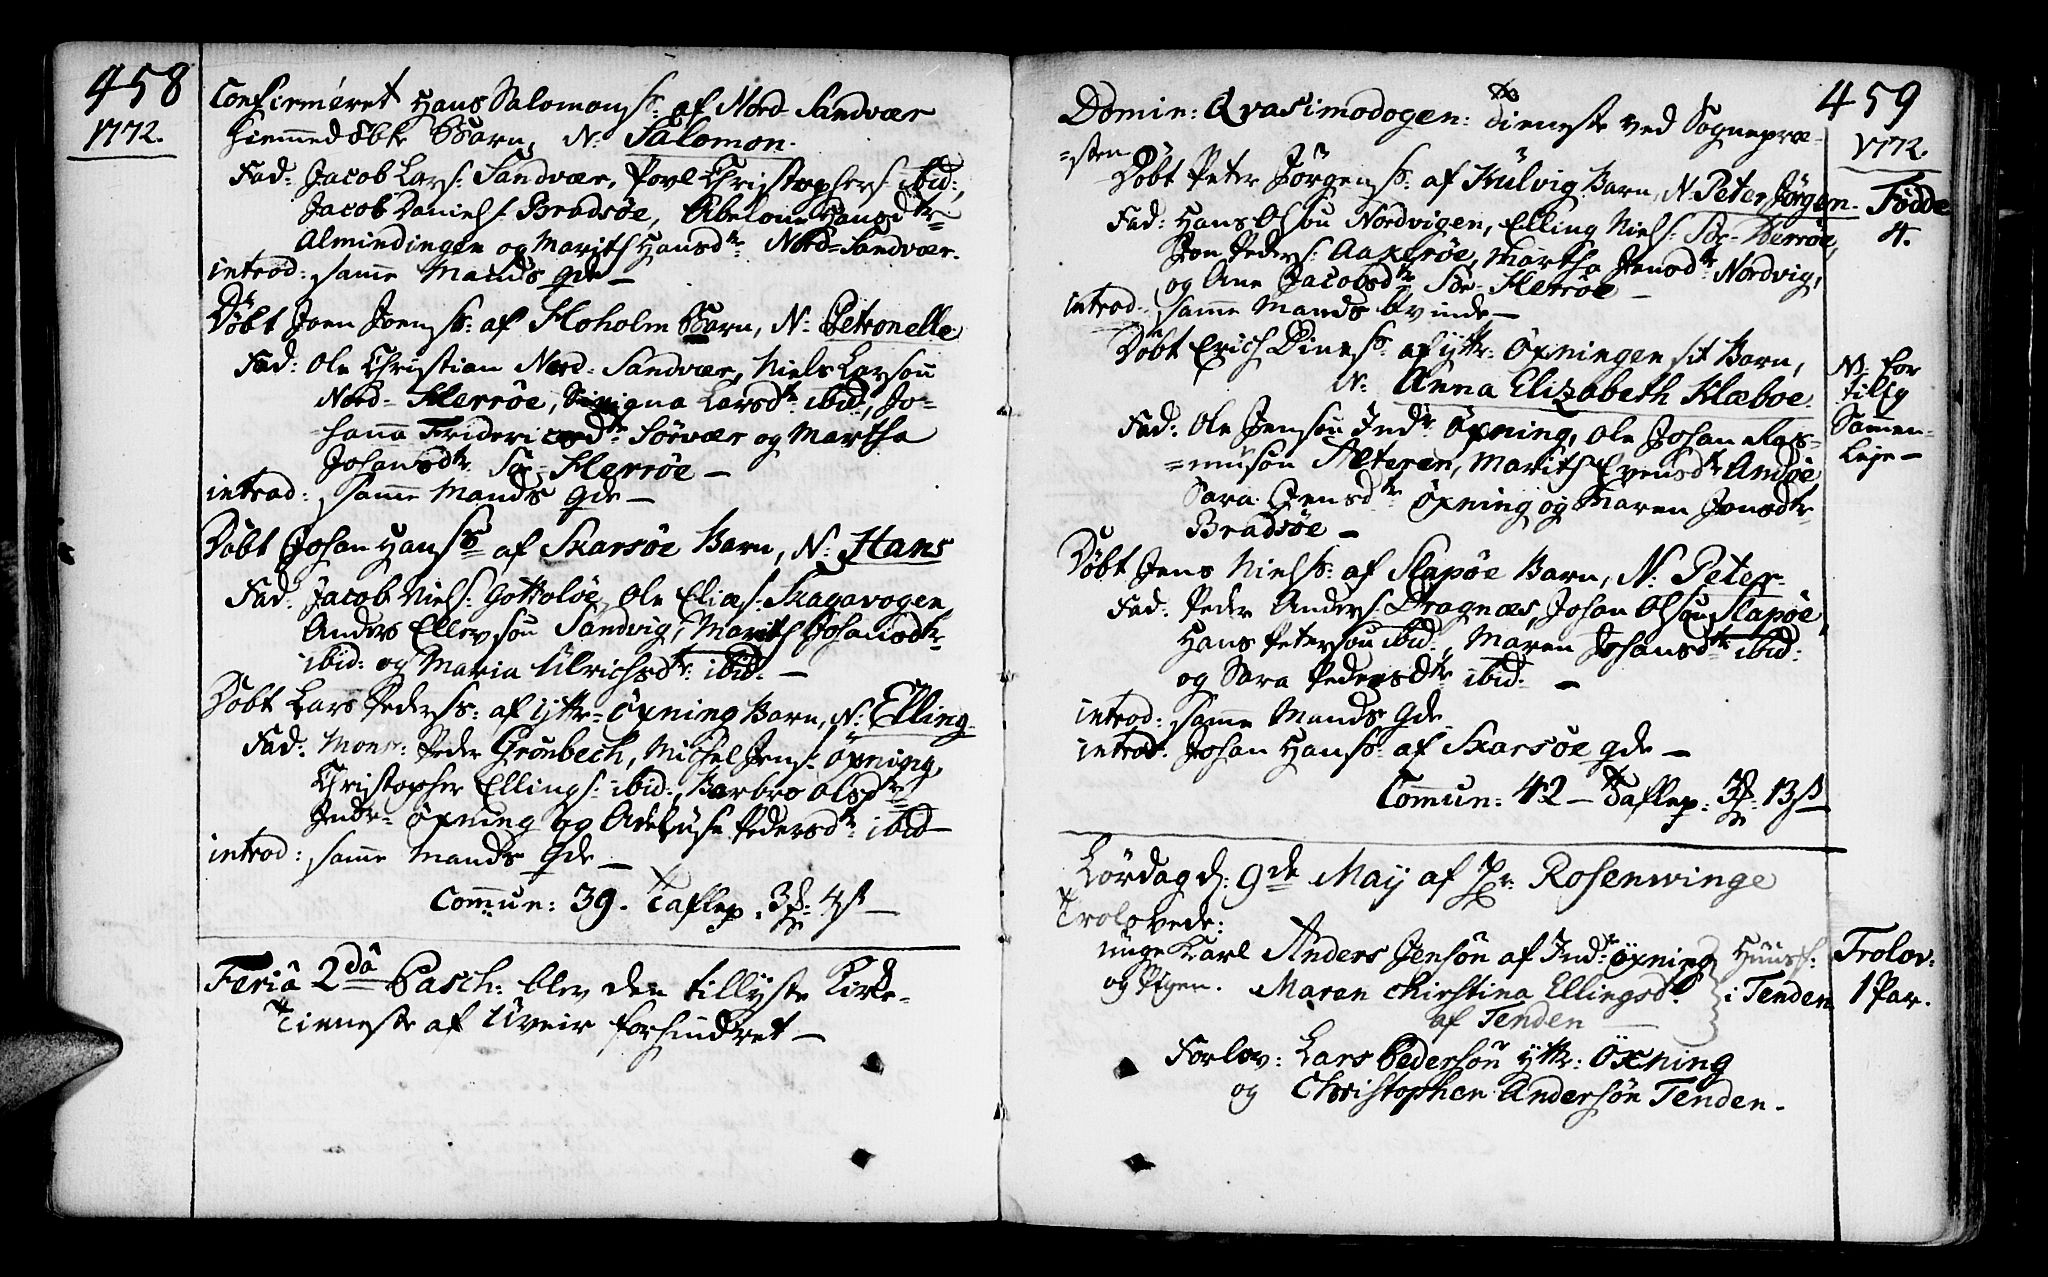 458
1772.
Confirmeret Hans Salomons: af Nord Sandvær
hiemmedöbte Barn, N: Salomon.
Fad: Jacob Lars: Sandvær, Povl Christophers: ibid:,
Jacob Daniels: Bradsöe, Abelone Hansdtr
Almindingen og Marith Hansdtr Nord-Sandvær.
introd: samme Mands qde —
Döbt Joen Joens: af Floholm Barn, N: Petronelle
Fad: Ole Christian Nord-Sandvær, Niels Larsön
Nord-Herröe, Sirigna Larsdtr ibid:, Jo-
hanna Fridericsdtr Sörvær og Martha
Johansdtr Sör-Herröe —
introd: samme Mands qde —
Döbt Johan Hanss: af Skarsöe Barn, N: Hans
Fad: Jacob Niels: Gottolöe, Ole Elias: Skagavogen,
Anders Ellevsön Sandvig, Marith Johansdtr
ibid: og Maria Ulrichsdtr ibid: —
Döbt Lars Peders: af Yttr-Öxning Barn, N: Elling
Fad: Monsr: Peder Grönbech, Michel Jens: Öxning,
Christopher Ellings: ibid:, Barbro Olsdtr
Indr-Öxning og Adelusse Pedersdtr ibid —
introd: samme Mands qde —
Commun: 39. Taflep. 3: 4 ß —
Feria 2da Pasch: blev den tillyste Kirke-
Tieneste af Uveir forhindret —
459
1772.
Domin: Qvasimodogen: Tieneste ved Sognepræ-
-sten
Döbt Peter Jörgens: af Kulvig Barn, N. Peter Jörgen.
Fad: Hans Olsön Nordvigen, Elling Niels: Sör-Herröe,
Jon Peders: Aakeröe, Martha Jonsdtr Nordvig,
og Ane Jacobsdtr Sör-Herröe —
introd: samme Mands Qvinde —
Döbt Erich Diness: af Yttr: Öxningen sit Barn,
N: Anna Elizabeth Klæboe.
Fad: Ole Jensön Indr Öxning, Ole Johan Ras-
-musön Aleteren, Marith Evensdtr Andöe,
Sara Jensdtr Öxning og Maren Jonsdtr
Bradsöe —
Döbt Jens Niels: af Slapöe Barn, N: Peter
Fad: Peder Anders: Dragnæs, Johan Olsön Slapöe,
Hans Petersön ibid:, Maren Johansdtr ibid:
og Sara Pedersdtr ibid: —
introd: samme Mands Qde
introd: Johan Hanss: af Skarsöe qde —
Commun: 42 — Taflep: 3: 13 ß
Födde
4.
N: for
tilig
Samen-
Leje —
Lördag d: 9de Maij af Hr: Rosenwinge
Trolovede:
unge Karl Anders Jensön af Indr Öxning
og Pigen. Maren Chirstina Ellingsdr
af Tenden —
Huuss:
i Tenden
Trolov:
1 Par.
Forlov: Lars Pedersön Yttr: Öxning
og Christopher Andersön Tenden.